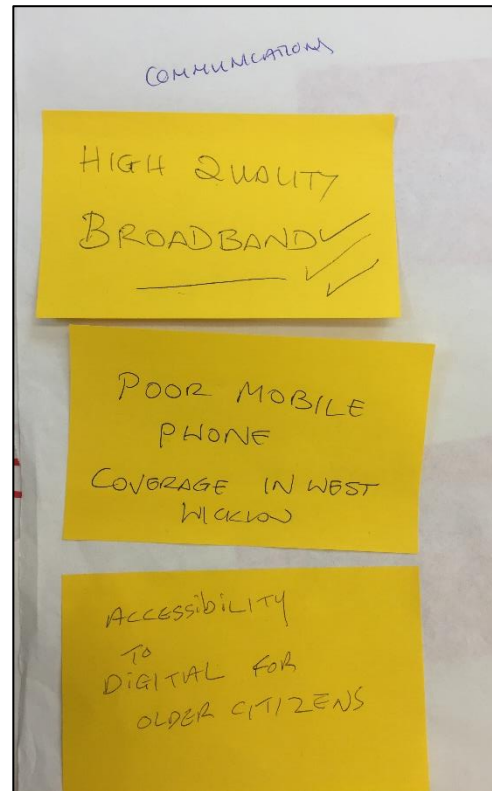 COMMUNICATIONS
HIGH QUALITY
BROADBAND ✓
✓
✓
POOR MOBILE
PHONE
COVERAGE IN WEST
WICKLOW
ACCESSIBILITY
TO
DIGITAL FOR
OLDER CITIZENS